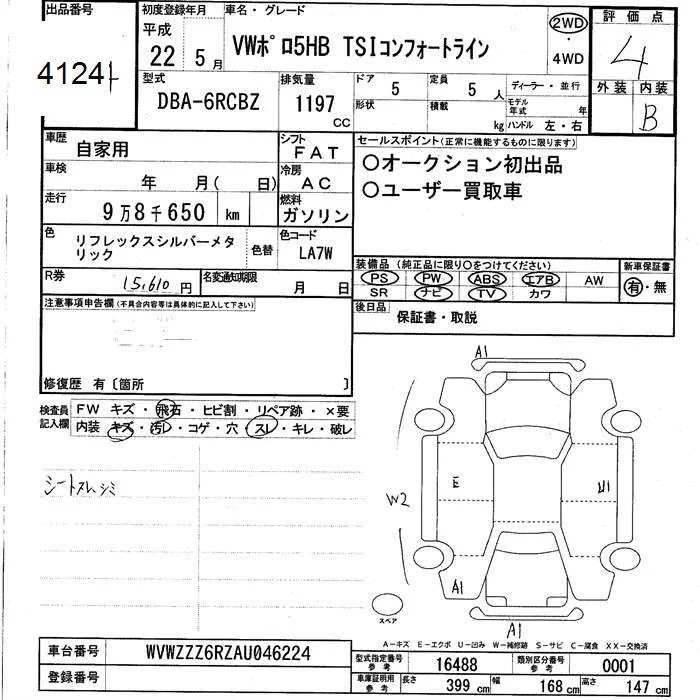 出品番号
4124
初度登録年月
平成
22 5月
車名・グレード
VWポロ5HB TSIコンフォートライン
2WD
4WD
評価点
4
外装 内装
B
型式
DBA-6RCBZ
排気量
1197
CC
ドア 5
定員 5人
形状
積載
kg
ディーラー・並行
モデル年式 年
ハンドル 左・右
車歴
自家用
シフト
FAT
車検
年 月( 日)
冷房
AC
走行
9万8千650 km
燃料
ガソリン
色
リフレックスシルバーメタ
リック
色替
色コード
LA7W
R券
15,610円
名変通知期限
月 日
セールスポイント(正常に機能するものに限ります)
○オークション初出品
○ユーザー買取車
装備品(純正品に限り○をつけてください)
PS PW ABS エアB AW
SR ナビ TV カワ
新車保証書
有・無
後日品
保証書・取説
注意事項申告欄(不具合内容等は具体的に記入して下さい)
修復歴 有〔箇所 〕
検査員
記入欄
FW キズ・飛石・ヒビ割・リペア跡・×要
内装・キズ・汚レ・コゲ・穴・スレ・キレ・破レ
シートスレ、シミ
A1
E
U1
W2
A1
A1
スペア
A-キズ E-エクボ U-凹み W-補修跡 S-サビ C-腐食 XX-交換済
車台番号
WVWZZZ6RZAU046224
登録番号
型式指定番号
参考
16488
類別区分番号
参考
0001
車庫証明用
参考
長さ 399 cm
幅 168 cm
高さ 147 cm